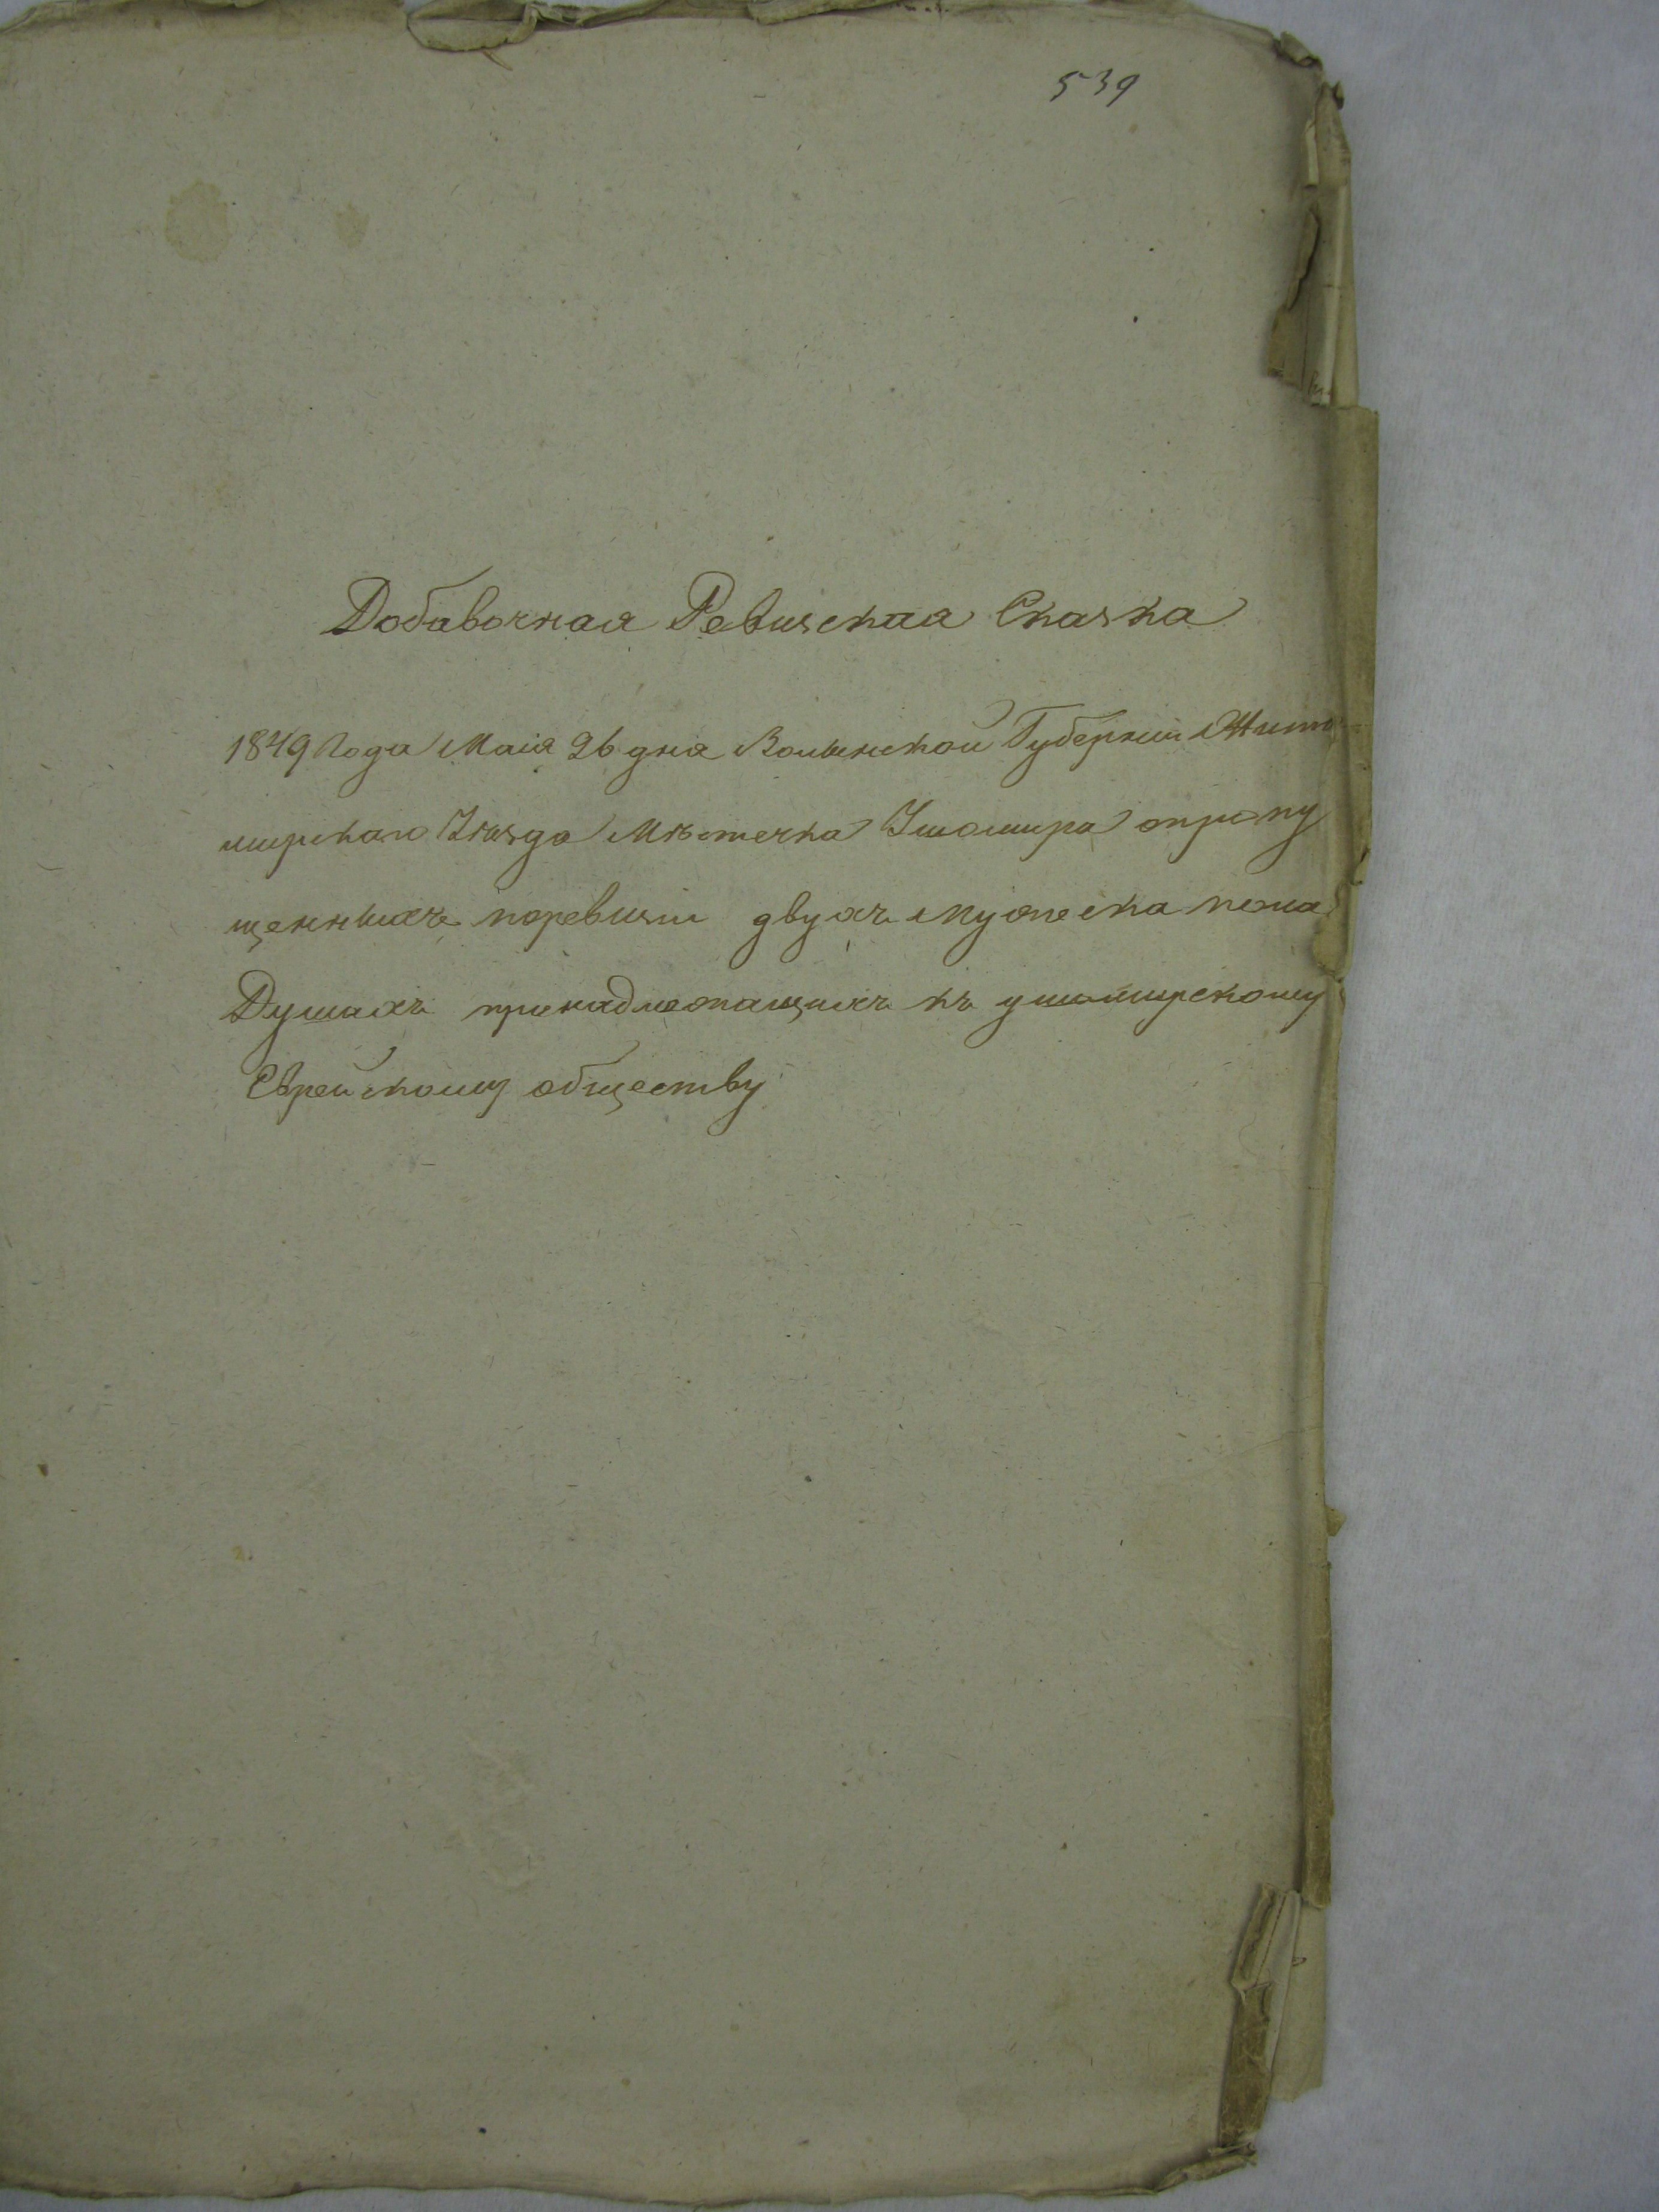 539
Добавочная Ревизская Сказка
1849 Года Маія 26 дня Волынской Губерніи Жито
мирскаго Уѣзда Мѣстечка Ушомира опропу
щенныхъ поревизіи двухъ мужеска пола
Душахъ принадлежащихъ къ ушомирскому
Еврейскому обществу